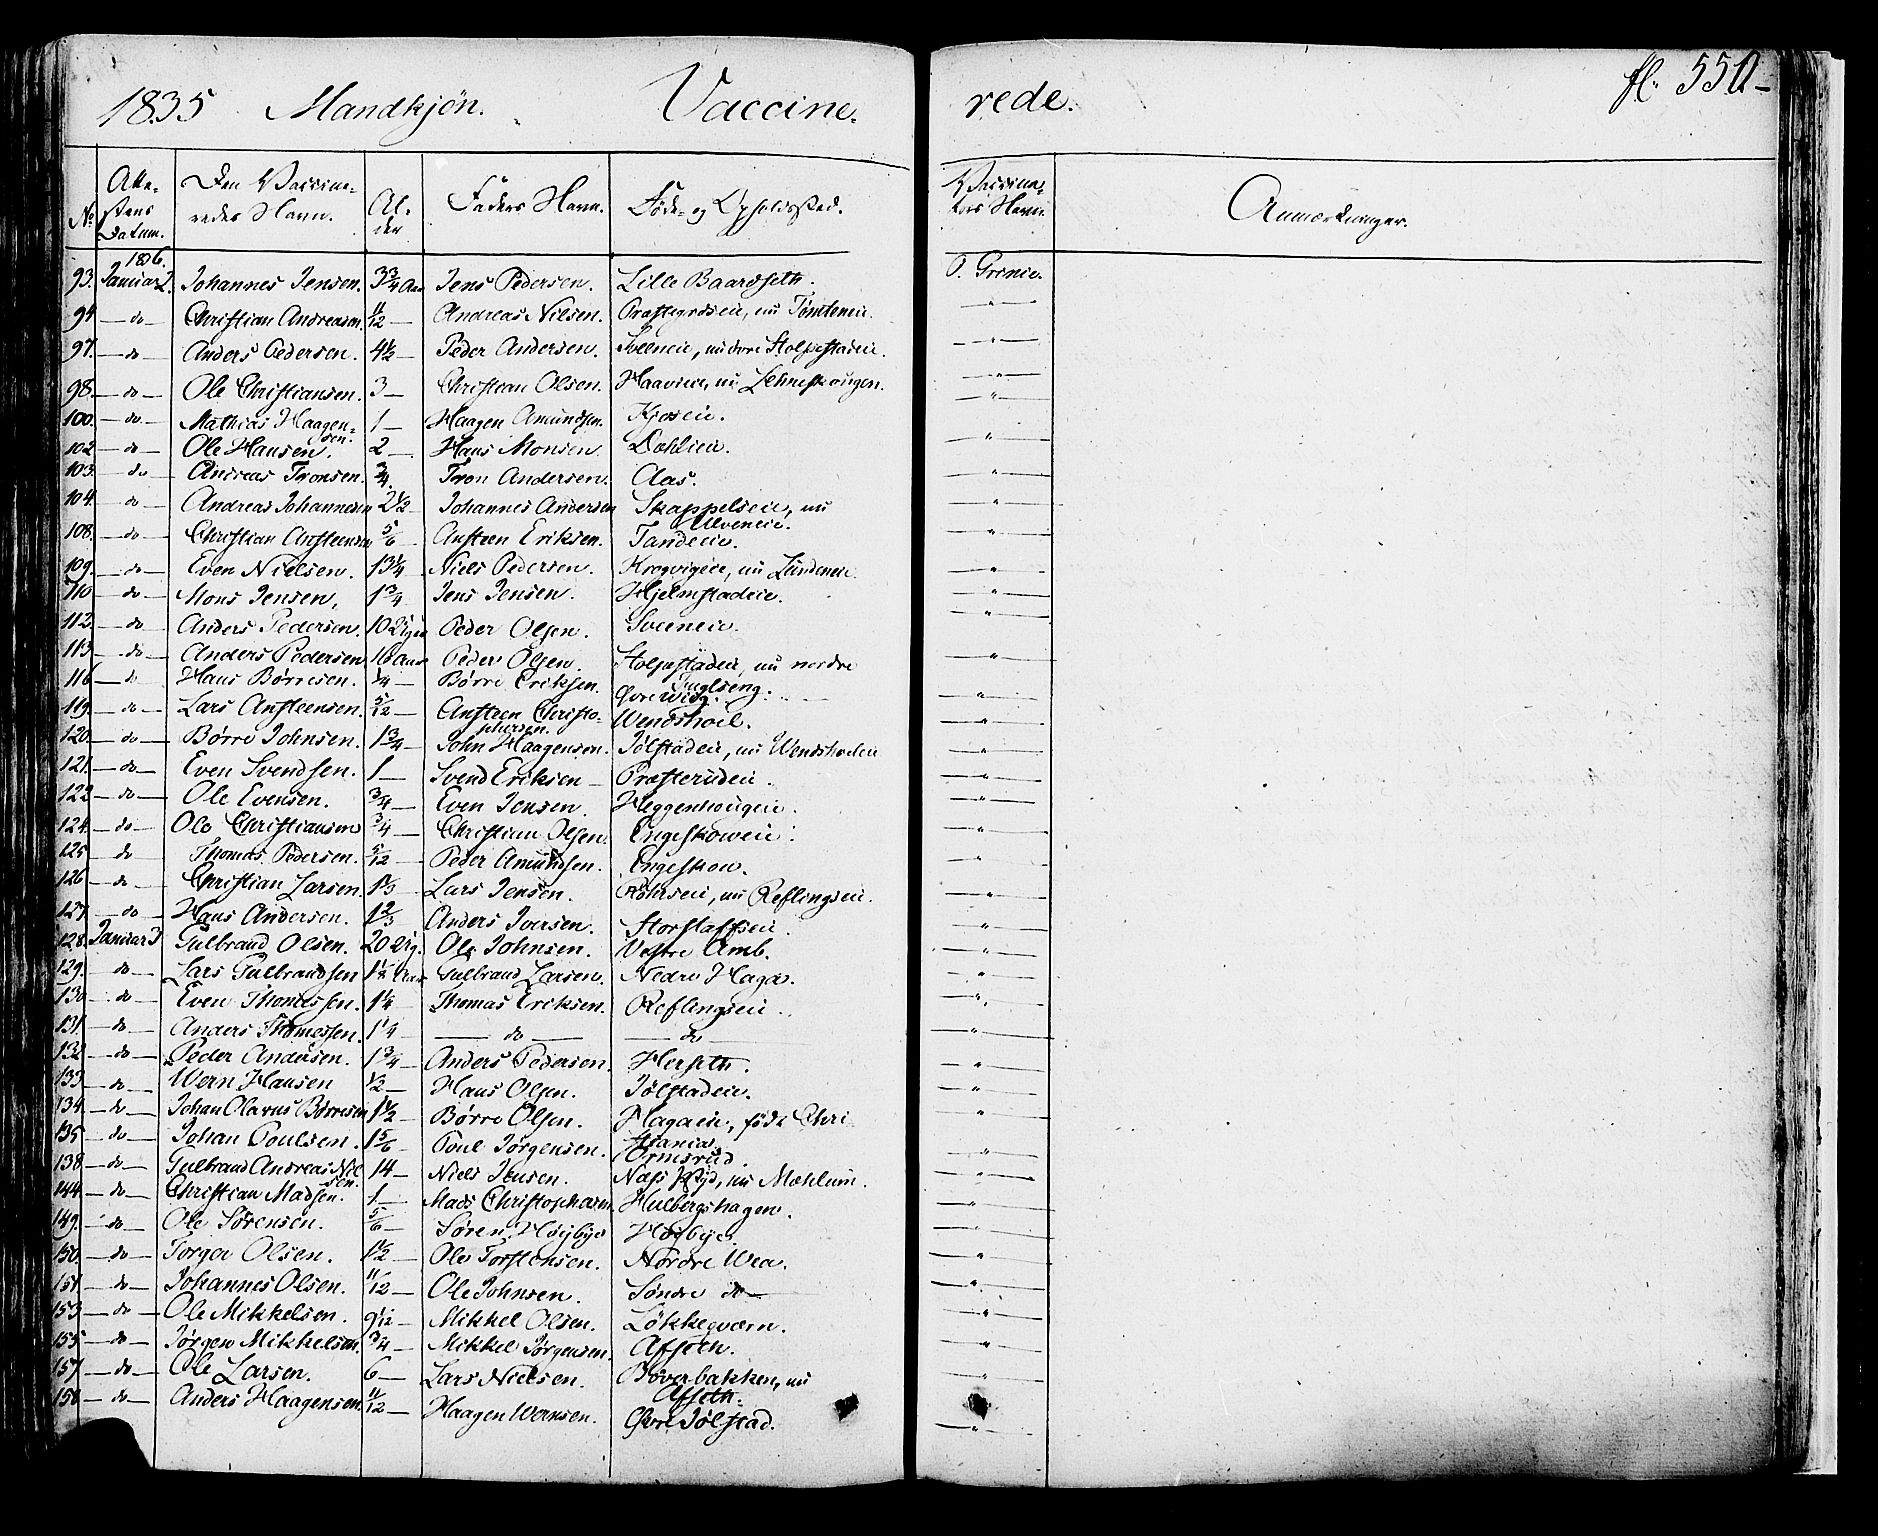 1835 Mandkjön. Vaccine- rede. fl. 550-
No. Atte-stens Datum. Den Vaccine-redes Navn. Al-der Faders Navn. Föde- og Opholdssted. Vaccina-tors Navn Anmærkninger.
1836.
93. Januar 2. Johannes Jensen. 3 3/4 Aar Jens Pedersen. Lille Baardseth. O. Grønie.
94 — do — Christian Andreasen. 11/12 — Andreas Nilsen. Præstegrdseie, nu Tömteneie. — " —
97. — do Anders Pedersen. 4 1/2 — Peder Andersen. Sveeneie, nu övre Stolpestadeie. — " —
98. — do — Ole Christiansen. 3 — Christian Olsen. Haavieie, nu — " —
100. — do — Mathias Haagen-sen. 1 — Haagen Amundsen. Kjoseie. — " —
102 — do — Ole Hansen. 2 — Hans Monsen. Dæhlieie. — " —
103. — do Andreas Tronsen. 3/4. Tron Andersen. Aas. — " —
104. — do Andreas Johannesen 2 1/2 — Johannes Andersen Skappelseie, nu Ulveneie. — " —
108. — do — Christian Austeensen 5/6 — Austeen Eriksen. Tandeeie. — " —
109. — do — Even Nielsen. 13 1/4 Niels Pedersen. Krogvigeie, nu Lundeneie. — " —
110 — do — Mons Jensen, 1 3/4 Jens Jensen. Hjelmstadeie. — " —
112. — do — Anders Pedersen. 10 Uger Peder Olsen. Sveeneie. — " —
113. — do Anders Pedersen 10 Aar Peder Olsen. Stolpestadeie, nu nordre Fuglseng. — " —
116 — do Hans Börresen. 1/4 — Börre Eriksen. Övre
119. — do — Lars Austeensen. 5/12 — Austeen Christo-phersen. Wendshoel. — " —
120. — do — Börre Johnsen. 1 3/4 — John Haagensen. Jölstadeie, nu Wendshoeleie — " —
121. — do — Even Svendsen. 1 — Svend Eriksen — Præsterudeie. — " —
122 — do — Ole Evensen. 3/4 — Even Jensen. Heggenhougeie. — " —
124. — do — Ole Christiansen 3/4 — Christian Olsen. Engeskoweie. — " —
125 — do Thomas Pedersen. 5/12 — Peder Amundsen. Engeskow. — " —
126 — do Christian Larsen. 1 1/3 Lars Jensen. nu Reflingseie. — " —
127. — do — Hans Andersen. 1 2/3 Anders Iversen. Storstaffseie. — " —
128. Januar 3 Gulbrand Olsen. 20 Ug. Ole Johnsen. Vestre Amb. — " —
129. — do Lars Gulbrandsen 1 1/2 Aar Gulbrand Larsen. Nedre Haga. — " —
130 — do Even Thomassen. 1 1/4 Thomas Eriksen. Reflingseie. — " —
131. — do Anders Thomassen. 1 1/4 — do — — do — — " —
132 — do — Peder Andersen. 1 3/4 — Anders Pedersen. Herseth. — " —
133 — do Wern Hansen 1/2 — Hans Olsen. Jölstadeie. — " —
134. — do — Johan Olavus Börresen 1 1/2 Börre Olsen. Hagaeie, föde Chri-stiania. — " —
135 — do — Johan Poulsen. 1 5/6 Poul Jörgensen. Ormsrud. — " —
138 — do — Gulbrand Andreas Niel-sen. 14 — Niels Jensen. Næss nu Mæhlum. — " —
144 — do — Christian Madsen. 1 — Mads Christophersen Hulbergshagen. — " —
149. — do — Ole Sörensen. 5/6 — Sören Höybye Höybye. — " —
150. — do — Torger Olsen. 1 1/2 — Ole Torstensen. Nordre Wea. — " —
151 — do — Johannes Olsen. 11/12 — Ole Johnsen. Söndre do — — " —
153 — do — Ole Mikkelsen. 9 1/12 — Mikkel Olsen. Lökkeqværn. — " —
155 — do — Jörgen Mikkelsen. 3/4 — Mikkel Jörgensen. Afseth. — " —
157 — do — Ole Larsen. 6 — Lars Nielsen. Böverbakken, nu Afseth. — " —
158 — do — Anders Haagensen. 11/12 — Haagen Wernsen. Övre Jölstad. — " —